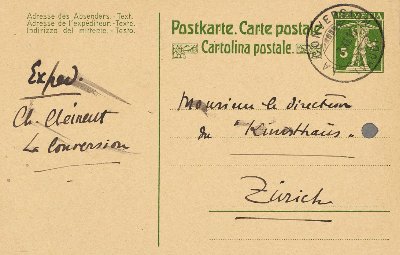 Adresse des Absenders. - Text.
Adresse de l'expéditeur. - Texte.
Indirizzo del mittente. - Testo.
Postkarte. Carte postale.
Cartolina postale.
HELVETIA
5
Exped.
Ch. Clément
La Conversion
Monsieur le directeur
du "Kunsthaus"
Zürich